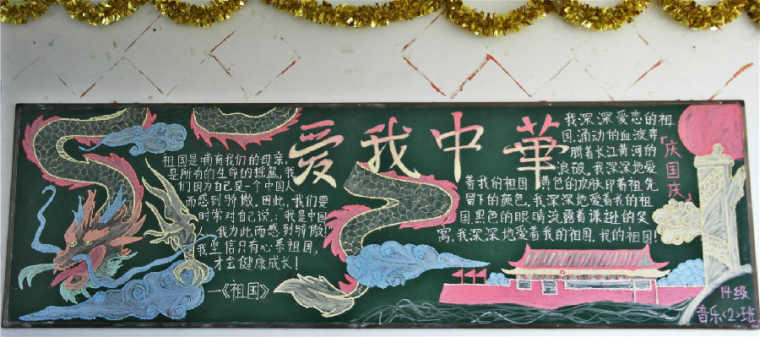 爱我中華
祖国是哺育我们的母亲,
是所有的生命的摇篮,我
们因为自己是一个中国人
而感到骄傲。因此,我们要
时常对自己说:我是中国
人,我为此而感到骄傲!
我坚信只有心系祖国,
才会健康成长!
—《祖国》
我深深爱恋的祖
国,涌动的血液奔
腾着长江黄河的
浪破,我深深地爱
着我的祖国,黄色的皮肤印着祖先
留下的颜色,我深深地爱着我的祖
国,黑色的眼睛流露着谦逊的笑
窝,我深深地爱着我的祖国,我的祖国!
「庆国庆」
14级
音乐〈2〉班